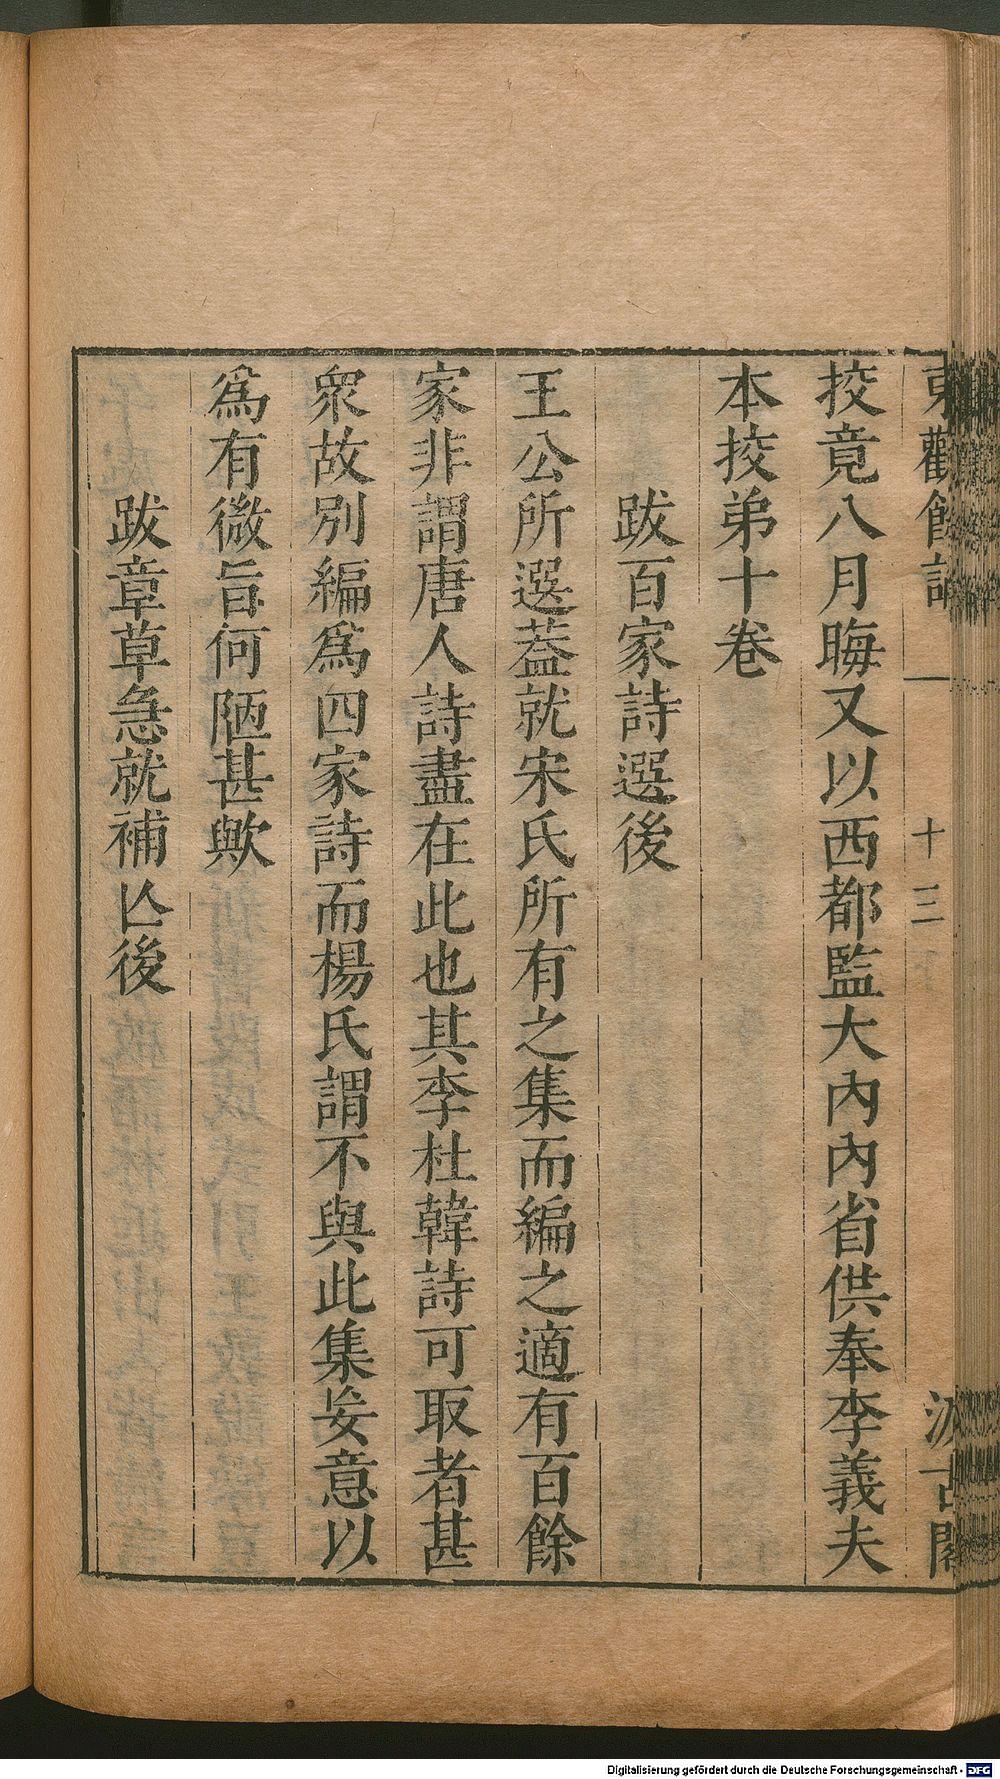 東觀餘論
十三
汲古閣
挍竟八月晦又以西都監大內內省供奉李義夫
本挍弟十卷
跋百家詩選後
王公所選蓋就宋氏所有之集而編之適有百餘
家非謂唐人詩盡在此也其李杜韓詩可取者甚
衆故別編爲四家詩而楊氏謂不與此集妄意以
爲有微旨何陋甚歟
跋章草急就補亾後
Digitalisierung gefördert durch die Deutsche Forschungsgemeinschaft - DFG